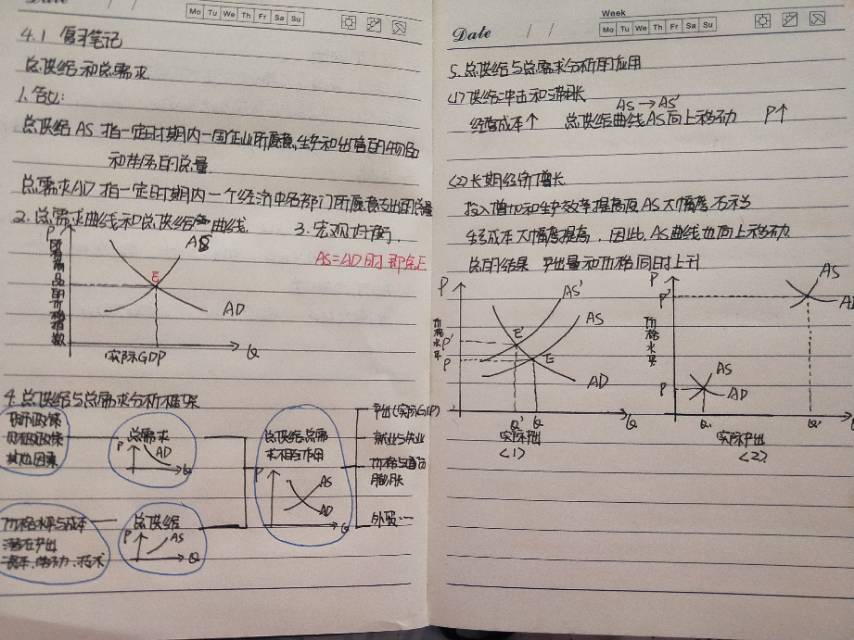 Date / /
Mo Tu We Th Fr Sa Su
4.1 复习笔记
总供给和总需求
1.含义:
总供给AS 指一定时期内一国企业所愿意生产和出售的物品
和劳务的总量
总需求AD 指一定时期内一个经济中各部门所愿意支出的总量
2.总需求曲线和总供给曲线
3.宏观均衡.
AS=AD时 即点E
P
所有商品的价格指数
AS
E
AD
实际GDP
Q
4.总供给与总需求分析框架
货币政策
财政政策
其他因素
总需求
P
AD
Q
价格水平与成本
潜在产出
资本、劳动、技术
总供给
P
AS
Q
总供给总需
求相互作用
P
AS
AD
Q
产出(实际GDP)
就业与失业
价格与通货
膨胀
外贸…
Week
Date / /
Mo Tu We Th Fr Sa Su
5.总供给与总需求分析的应用
(1)供给冲击和滞胀
AS→AS'
经营成本↑ 总供给曲线AS向上移动 P↑
(2)长期经济增长
投入增加和生产效率提高使AS大幅度右移
生产成本大幅度提高,因此,AS曲线也向上移动
总的结果 产出量和价格同时上升
P
价格水平
P'
P
AS'
AS
E'
E
AD
Q' Q
Q
实际产出
(1)
P
价格水平
P'
P
AS
AD
AS
AD
Q
Q'
Q
实际产出
(2)